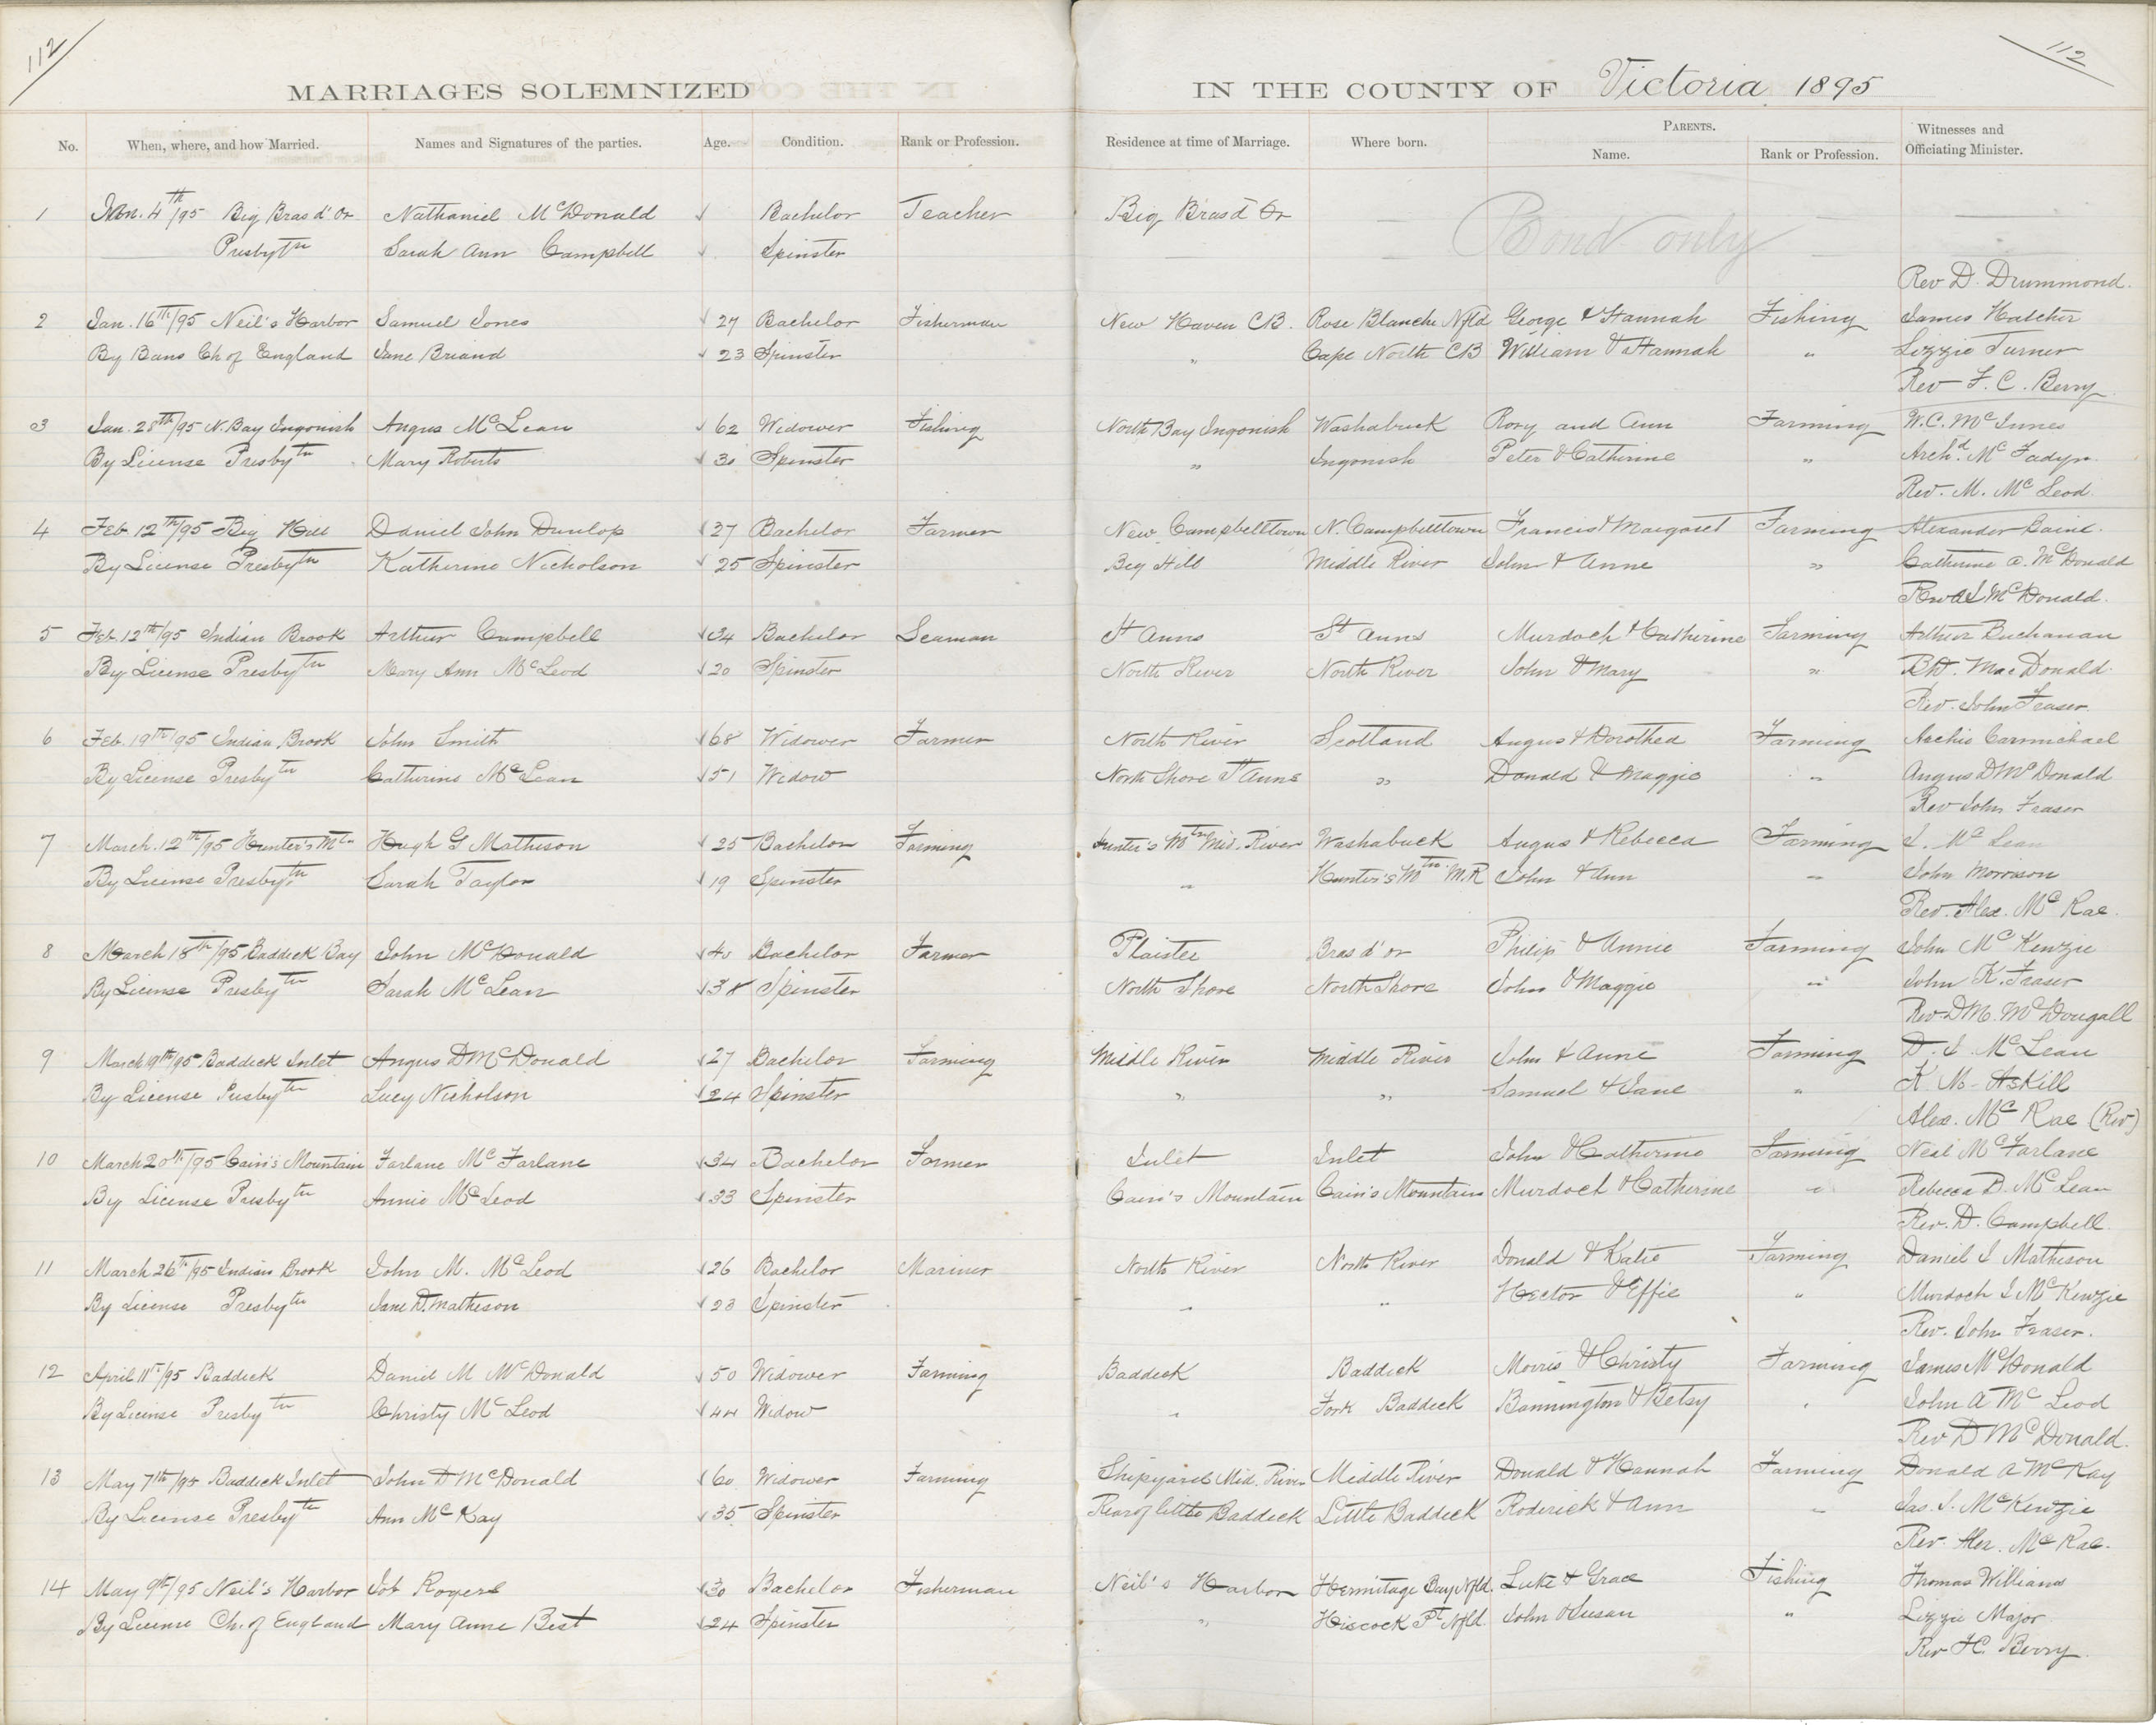 112
MARRIAGES SOLEMNIZED
No. When, where, and how Married. Names and Signatures of the parties. Age. Condition. Rank or Profession.
1 Jan. 4th/95 Big Bras d'Or Nathaniel McDonald Bachelor Teacher
Presbytn Sarah Ann Campbell Spinster
2 Jan. 16th/95 Neil's Harbor Samuel Jones 27 Bachelor Fisherman
By Bans Ch of England Jane Briand 23 Spinster
3 Jan. 28th/95 N. Bay Ingonish Angus McLean 62 Widower Fishing
By License Presbytn Mary Roberts 30 Spinster
4 Feb 12th/95 Big Hill Daniel John Dunlop 37 Bachelor Farmer
By License Presbytn Katherine Nicholson 25 Spinster
5 Feb. 12th/95 Indian Brook Arthur Campbell 34 Bachelor Seaman
By License Presbytn Mary Ann McLeod 20 Spinster
6 Feb. 19th/95 Indian Brook John Smith 68 Widower Farmer
By License Presbytn Catherine McLean 51 Widow
7 March. 12th/95 Hunter's Mtn Hugh G Matheson 25 Bachelor Farming
By License Presbytn Sarah Taylor 19 Spinster
8 March 18th/95 Baddeck Bay John McDonald 40 Bachelor Farmer
By License Presbytn Sarah McLean 38 Spinster
9 March 19th/95 Baddeck Inlet Angus D McDonald 27 Bachelor Farming
By License Presbytn Lucy Nicholson 24 Spinster
10 March 20th/95 Cain's Mountain Farlane McFarlane 34 Bachelor Farmer
By License Presbytn Annie McLeod 33 Spinster
11 March 26th/95 Indian Brook John M. McLeod 26 Bachelor Mariner
By License Presbytn Jane D. Matheson 23 Spinster
12 April 11th/95 Baddeck Daniel M McDonald 50 Widower Farming
By License Presbytn Christy McLeod 44 Widow
13 May 7th/95 Baddeck Inlet John D McDonald 60 Widower Farming
By License Presbytn Ann McKay 35 Spinster
14 May 9th/95 Neil's Harbor Job Rogers 30 Bachelor Fisherman
By License Ch. of England Mary Anne Best 24 Spinster
112
IN THE COUNTY OF Victoria 1895
Residence at time of Marriage. Where born. PARENTS. Name. Rank or Profession. Witnesses and Officiating Minister.
Big Bras d'Or
Bond only
Rev D. Drummond.
New Haven CB. Rose Blanche Nfld George & Hannah Fishing James Hatcher
" Cape North CB William & Hannah " Lizzie Turner
Rev F. C. Berry
North Bay Ingonish Washabuck Rory and Ann Farming W. C. McInnes
" Ingonish Peter & Catherine " Archd. McFadyn
Rev. M. McLeod.
New Campbelltown N. Campbelltown Francis & Margaret Farming Alexander Baine.
Big Hill Middle River John & Anne " Catherine A. McDonald
Rev McDonald.
St Anns St Anns Murdoch & Catherine Farming Arthur Buchanan
North River North River John & Mary " MacDonald.
Rev. John Fraser.
North River Scotland Angus & Dorothea Farming Archie Carmichael
North Shore St Anns " Donald & Maggie " Angus D McDonald
Rev John Fraser
Hunter's Mtn Mid. River Washabuck Angus & Rebecca Farming J. McLean
" Hunter's Mtn. M.R John & Ann " John Morrison
Rev. Alex. McRae.
Plaister Bras d'or Philip & Annie Farming John McKenzie
North Shore North Shore John & Maggie " John K. Fraser
Rev D M. McDougall
Middle River Middle River John & Anne Farming D. J. McLean
" " Samuel & Jane " K. McAskill
Alex. McRae (Rev)
Inlet Inlet John & Catherine Farming Neil McFarlane
Cain's Mountain Cain's Mountain Murdoch & Catherine " Rebecca D. McLean
Rev. D. Campbell.
North River North River Donald & Katie Farming Daniel J Matheson
" " Hector & Effie " Murdoch J McKenzie
Rev. John Fraser.
Baddeck Baddeck Morris & Christy Farming James McDonald
" Fork Baddeck Bannington & Betsy " John A McLeod
Rev D McDonald.
Shipyard Mid. River Middle River Donald & Hannah Farming Donald A McKay
Rear of little Baddeck Little Baddeck Roderick & Ann " Jas. J. McKenzie
Rev. Alex. McRae.
Neil's Harbor Hermitage Bay Nfld. Luke & Grace Fishing Thomas Williams
" Hiscock Pt Nfld. John & Susan " Lizzie Major
Rev F C. Berry